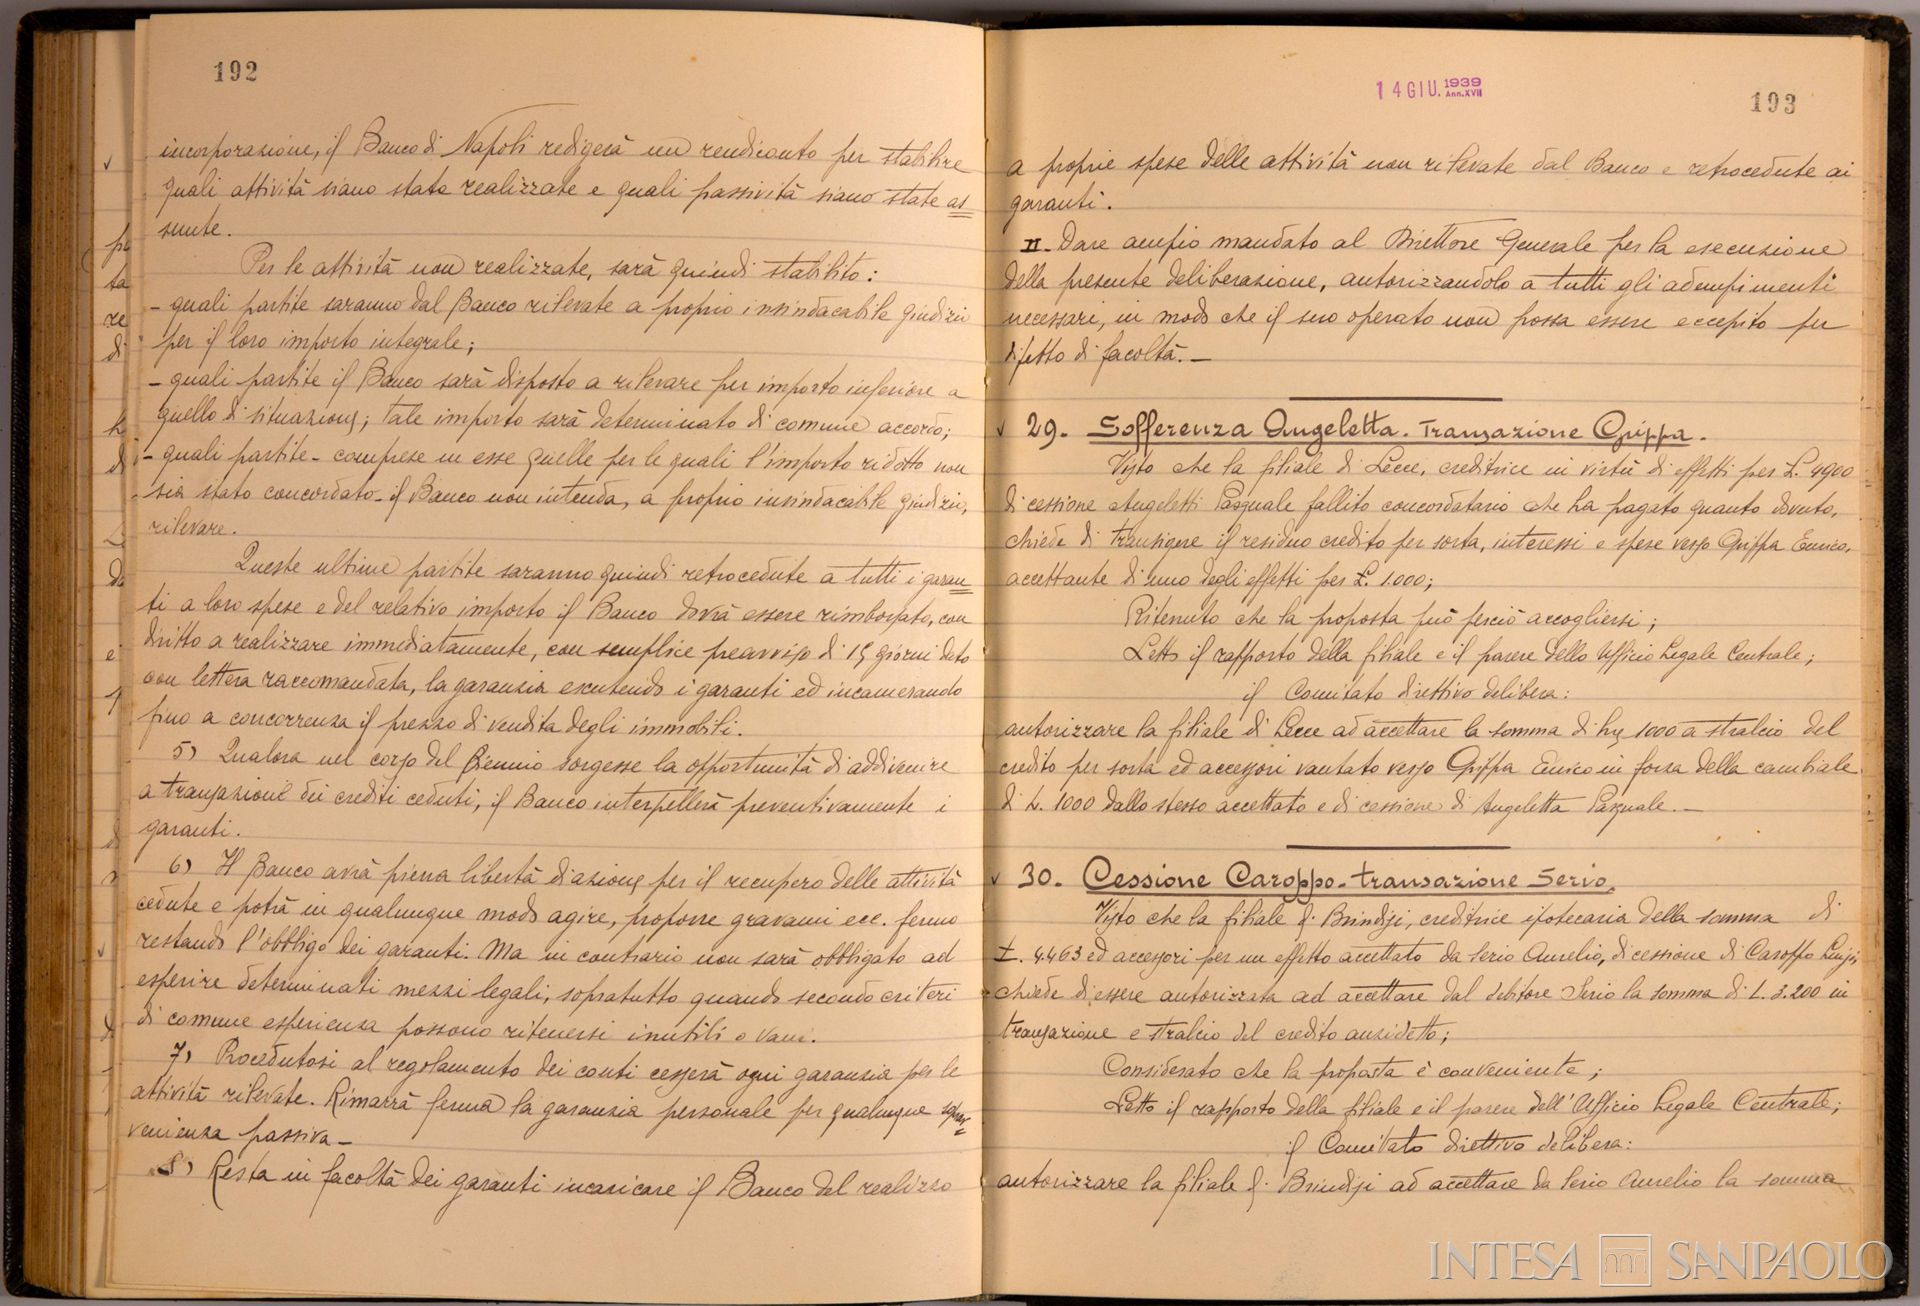 192
incorporazione, il Banco di Napoli redigerà un rendiconto per stabilire
quali attività siano state realizzate e quali passività siano state as
sunte.
Per le attività non realizzate, sarà quindi stabilito:
- quali partite saranno dal Banco rilevate a proprio insindacabile giudizio
per il loro importo integrale;
- quali partite il Banco sarà disposto a rilevare per importo inferiore a
quello di situazione; tale importo sarà determinato di comune accordo;
- quali partite - comprese in esse quelle per le quali l'importo ridotto non
sia stato concordato - il Banco non intenda, a proprio insindacabile giudizio,
rilevare.
Queste ultime partite saranno quindi retrocedute a tutti i garan
ti a loro spese e del relativo importo il Banco dovrà essere rimborsato, con
diritto a realizzare immediatamente, con semplice preavviso di 15 giorni dato
con lettera raccomandata, la garanzia escutendo i garanti ed incamerando
fino a concorrenza il prezzo di vendita degli immobili.
5) Qualora nel corso del Biennio sorgesse la opportunità di addivenire
a transazione dei crediti ceduti, il Banco interpellerà preventivamente i
garanti.
6) Il Banco avrà piena libertà di azione per il recupero delle attività
cedute e potrà in qualunque modo agire, proporre gravami ecc. fermo
restando l'obbligo dei garanti. Ma in contrario non sarà obbligato ad
esperire determinati mezzi legali, sopratutto quando secondo criteri
di comune esperienza possono ritenersi inutili o vani.
7) Procedutosi al regolamento dei conti cesserà ogni garanzia per le
attività rilevate. Rimarrà ferma la garanzia personale per qualunque soprav
venienza passiva -
8) Resta in facoltà dei garanti incaricare il Banco del realizzo
14 GIU. 1939
Ann. XVII
193
a proprie spese delle attività non rilevate dal Banco e retrocedute ai
garanti.
II - Dare ampio mandato al Direttore Generale per la esecuzione
della presente deliberazione, autorizzandolo a tutti gli adempimenti
necessari, in modo che il suo operato non possa essere eccepito per
difetto di facoltà. -
29. Sofferenza Angeletta. Transazione Grippa.
Visto che la filiale di Lecce, creditrice in virtù di effetti per L. 4900
di cessione Angeletti Pasquale fallito concordatario che ha pagato quanto dovuto,
chiede di transigere il residuo credito per sorta, interessi e spese verso Grippa Enrico,
accettante di uno degli effetti per L. 1.000;
Ritenuto che la proposta può perciò accogliersi;
Letto il rapporto della filiale e il parere dello Ufficio Legale Centrale;
il Comitato direttivo delibera:
autorizzare la filiale di Lecce ad accettare la somma di lire 1000 a stralcio del
credito per sorta ed accessori vantato verso Grippa Enrico in forza della cambiale
di L. 1000 dallo stesso accettato e di cessione di Angeletta Pasquale. -
30. Cessione Caroppo - transazione Serio.
Visto che la filiale di Brindisi, creditrice ipotecaria della somma di
L. 4.463 ed accessori per un effetto accettato da Serio Aurelio, di cessione di Caroppo Luigi,
chiede di essere autorizzata ad accettare dal debitore Serio la somma di L. 3.200 in
transazione e stralcio del credito ansidetto;
Considerato che la proposta è conveniente;
Letto il rapporto della filiale e il parere dell'Ufficio Legale Centrale;
il Comitato direttivo delibera:
autorizzare la filiale di Brindisi ad accettare da Serio Aurelio la somma
INTESA SANPAOLO